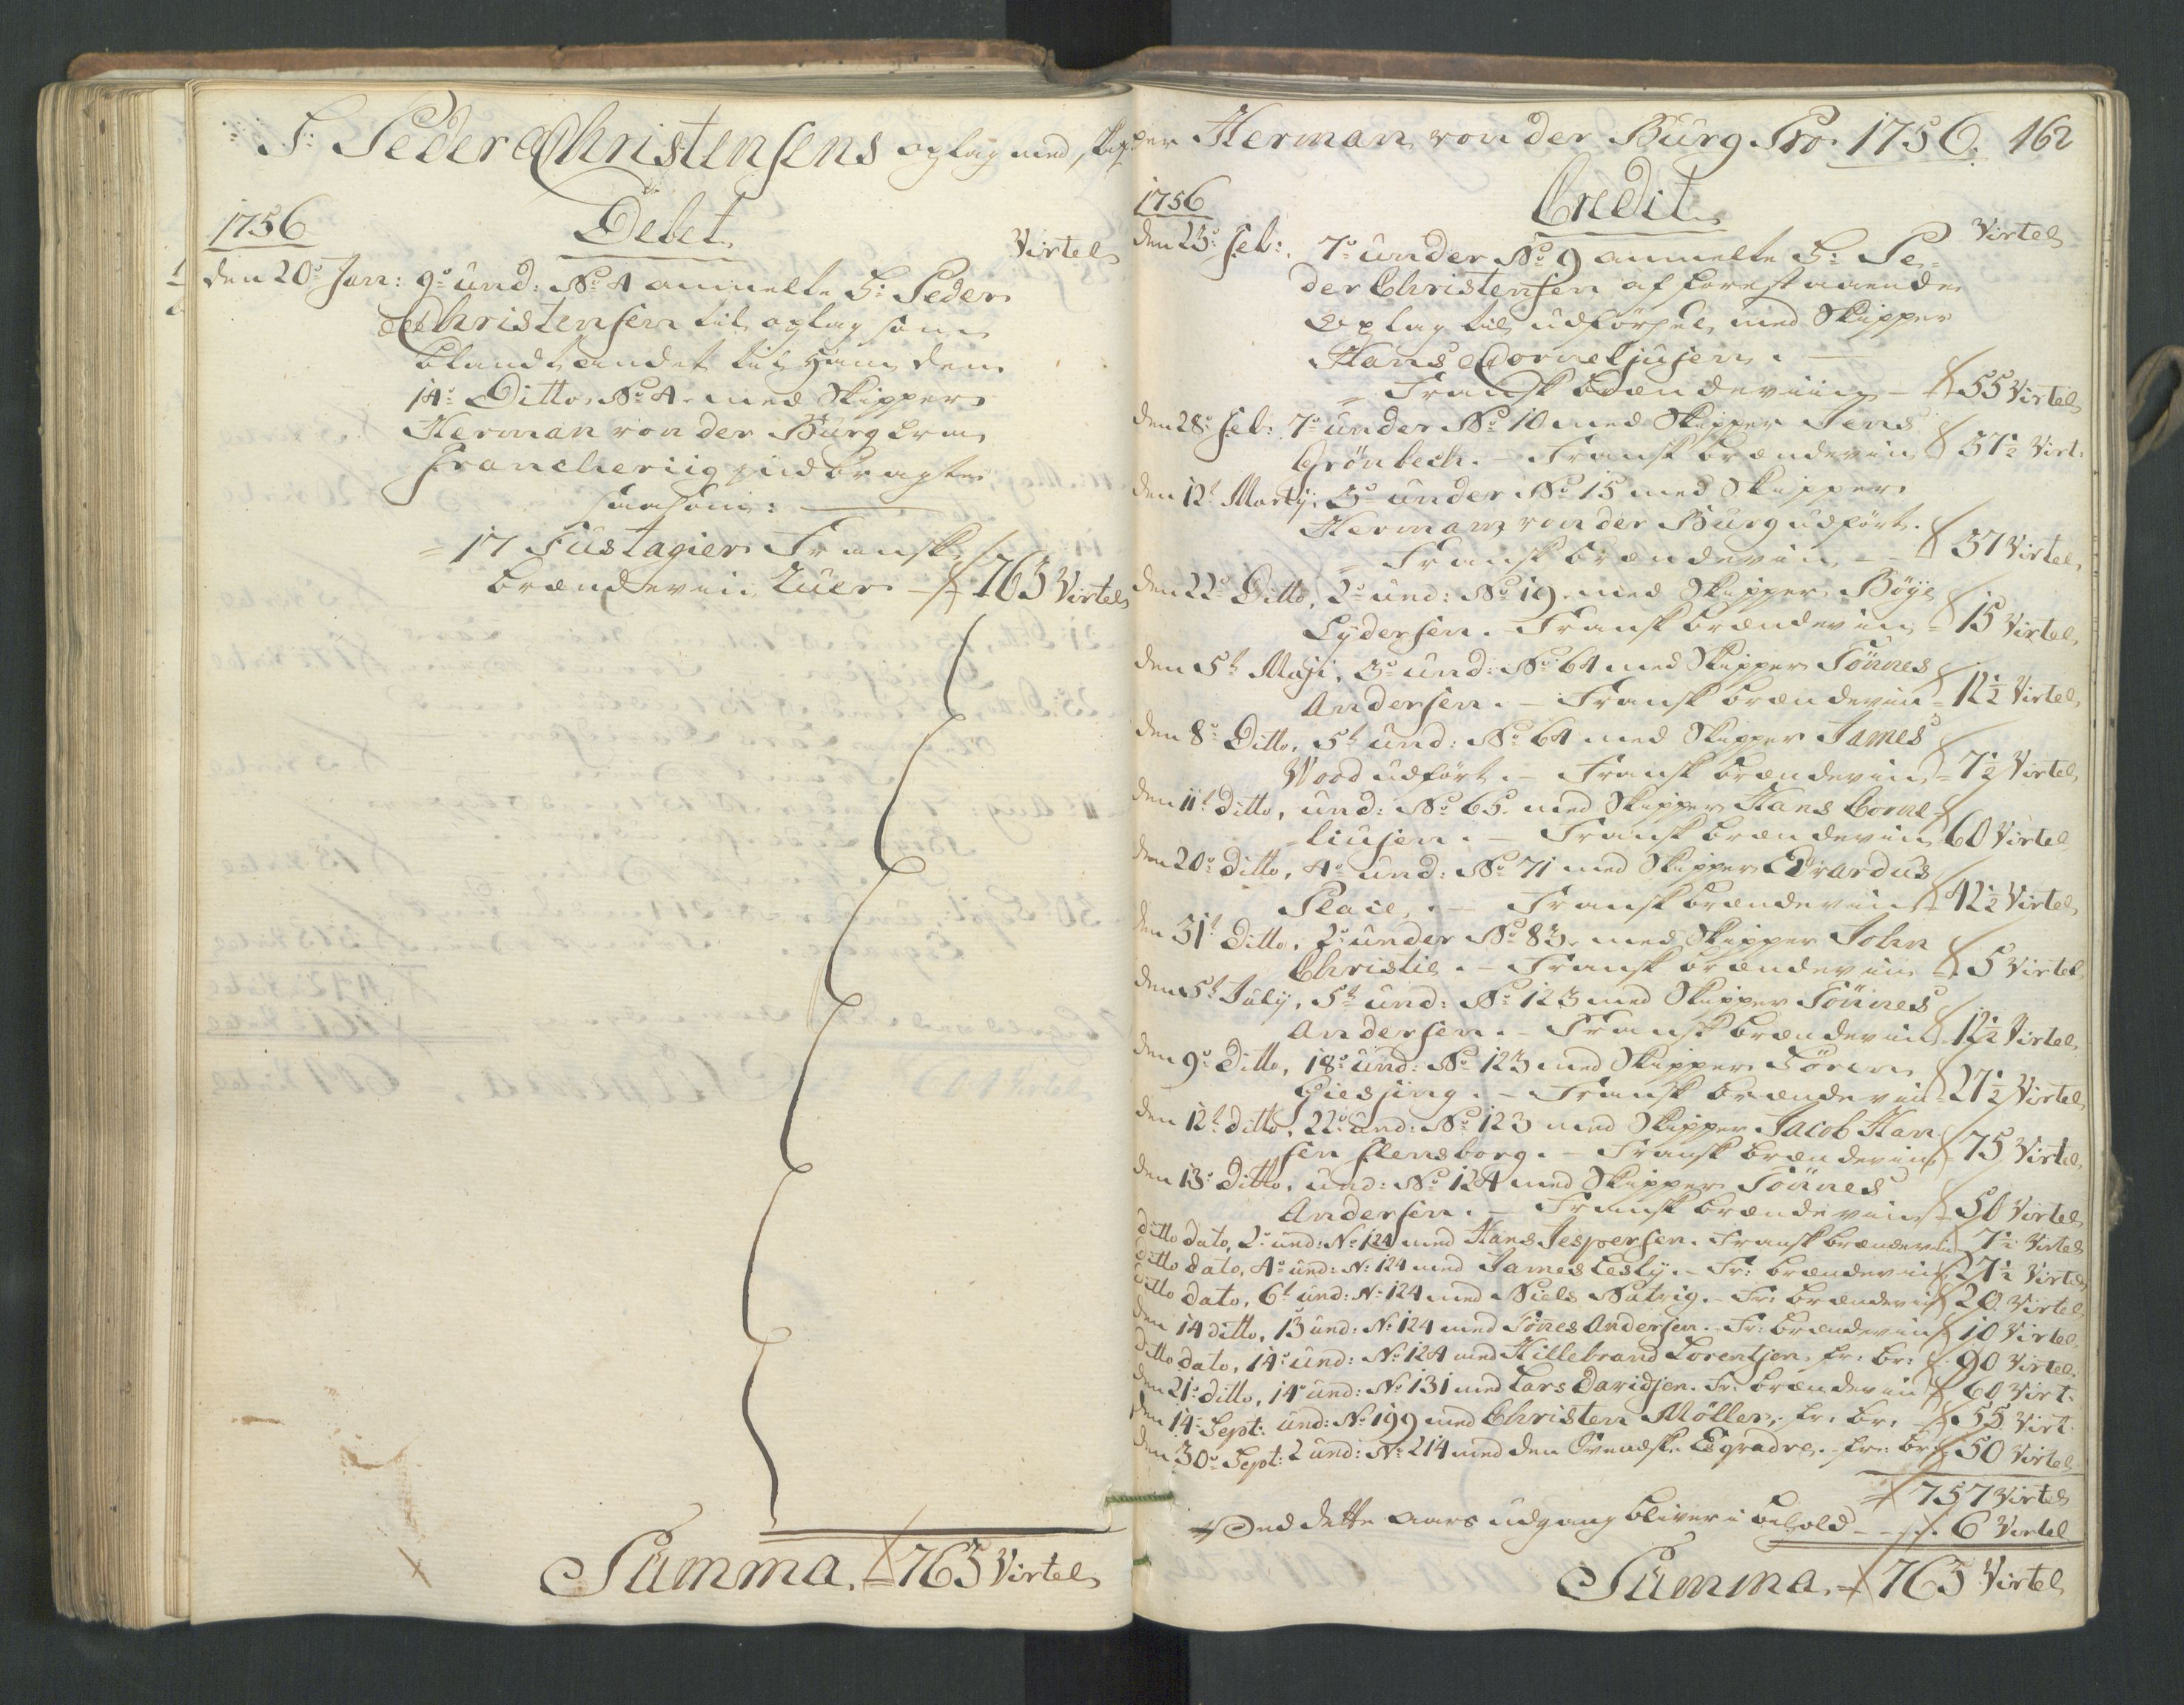 S: Peder Christensens oplag med skipper Herman von der Burg Pro. 1756. 162
Debet
1756
Virtel
den 20de Jan: 9de und: No 4 anmelte Sr: Peder
Christensen til oplag som
blandt andet til ham den
14de Ditto, No 4. med Skipper
Herman von der Burg fra
indbragte
saasom:
= 17 Fustagier Fransk
brændeviin 763 Virtel
Summa. 763 Virtel
Credit
1756
Virtel
den 25de feb: 7de under No 9 anmelte Sr: Pe-
der Christensen af forestaaende
Oplag til udførsel med Skipper
Hans Corneljusen.
= Fransk brændeviin - 55 Virtel
den 28de feb: 7de under No 10 med Skipper Jens
Grönbech. - Fransk brændeviin 37½ Virt:
den 12te Martij, 5te under No 15 med Skipper
Herman von der Burg udført.
= Fransk brændeviin - 37 Virtel
den 22de Ditto, 2de und: No 19 med Skipper Böye
Lydersen. - Fransk brændeviin - 15 Virtel
den 5te Maji, 3de und: No 64 med Skipper Tönnes
Andersen. - Fransk brændeviin - 12½ Virtel
den 8de Ditto, 5te und: No 64 med Skipper James
Wood udført. - Fransk brændeviin - 7½ Virtel
den 11te Ditto, und: No 65 med Skipper Hans Corne-
=liusen. - Fransk brændeviin 60 Virtel
den 20de Ditto, 4de und: No 71 med Skipper Evardus
Place. - Fransk brændeviin - 42½ Virtel
den 31te Ditto, 2de under No 83. med Skipper John
Christie. - Fransk brændeviin 5 Virtel
den 5te Julÿ, 5te und: No 123 med Skipper Tönnes
Andersen. - Fransk brændeviin - 12½ Virtel
den 9de Ditto, 18de und: No 123 med Skipper Sören
Giessing. - Fransk brændeviin - 27½ Virtel
den 12te ditto, 22de und: No 123 med Skipper Jacob Han
sen flensborg. - Fransk brændeviin - 75 Virtel
den 13de Ditto, und: No 124 med Skipper Tönnes
Andersen. - Fransk brændeviin - 50 Virtel
ditto dato, 2de und: No 124 med Hans Jespersen. Fransk brændeviin 7½ Virtel
ditto dato, 4de und: No 124 med James Lesly. - Fr: brændeviin 27½ Virtel
ditto dato, 6te und: No 124 med Niels Natvig. - Fr: brændeviin 20 Virtel
den 14 ditto, 13 und: No 124 med Tönes Andersen. Fr: brændeviin 10 Virtel
ditto dato, 14de und: No 124 med Hillebrand Lorentsen. fr: br: 90 Virtel
den 21de ditto, 14de und: No 131 med Lars Davidsen. Fr: brændeviin 60 Virt:
den 14de Sept: und: No 199 med Christen Möller. fr: br: - 55 Virt:
den 30de Sept: 2 und: No 214 med den Svendske Esqradre. - fr: br: 50 Virtel
757 Virtel
Ved dette aars udgang bliver i behold - - - 6 Virtel
Summa. 763 Virtel